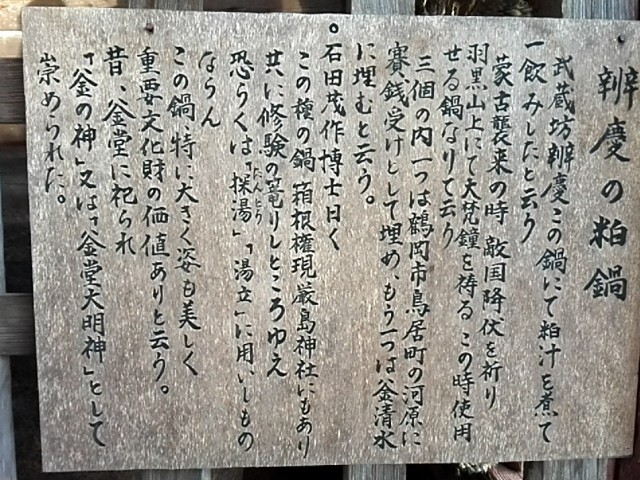 辨慶の粕鍋
武蔵坊辨慶この鍋にて粕汁を煮て
一飲みしたと云う
蒙古襲来の時敵国降伏を祈り
羽黒山上にて大梵鐘を祷る この時使用
せる鍋なりて云う
三個の内一つは鶴岡市鳥居町の河原に
賽銭受けとして埋め、もう一つは釜清水
に埋むと云う。
。石田茂作博士曰く
この種の鍋 箱根権現厳島神社にもあり
共に修験の篭りしところゆえ
恐らくは「探湯」「湯立」に用いしもの
たんとう
ならん
この鍋、特に大きく姿も美しく
重要文化財の価値ありと云う。
昔、釜堂に祀られ
「釜の神」又は「釜堂大明神」として
崇められた。